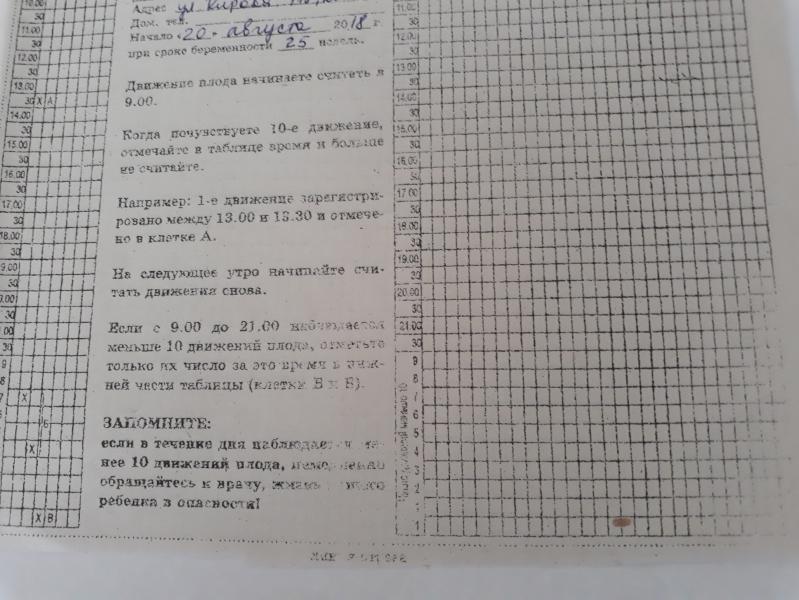 Адрес ул Кирова
Дом. тел.
Начало «20» августа 2018 г.
при сроке беременности 25 недель.
Движение плода начинаете считать в
9.00.
Когда почувствуете 10-е движение,
отмечайте в таблице время и больше
не считайте.
Например: 1-е движение зарегистри-
ровано между 13.00 и 13.30 и отмече-
но в клетке А.
На следующее утро начинайте счи-
тать движения снова.
Если с 9.00 до 21.00 наблюдается
меньше 10 движений плода, отметьте
только их число за это время в ниж-
ней части таблицы (клетки Б и В).
ЗАПОМНИТЕ:
если в течение дня наблюдается ме-
нее 10 движений плода, немедленно
обращайтесь к врачу, жизнь
ребенка в опасности!
11.00
30
12.00
30
13.00
30 X А
14.00
30
15.00
30
16.00
30
17.00
30
18.00
30
9.00
30
30
9
8
7 X
Б
X
X В
11.00
30
12.00
30
13.00
30
14.00
30
15.00
30
16.00
30
17.00
30
18.00
30
19.00
30
20.00
30
21.00
30
9
8
7
6
5
4
3
2
1